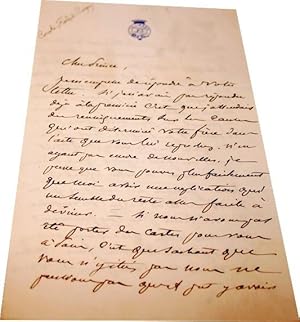 Cher Prince,
Je m'empresse de répondre à votre
lettre. Si je n'ai pas répondu
déjà à la première c'est que j'attendais
des renseignements sur les causes
qui ont déterminé votre frère dans
l'acte que vous lui reprochez. n'en
ayant pas encore de nouvelles, je
pense que vous pouvez plus facilement
que moi avoir une explication qui
me semble du reste assez facile à
deviner. — Si nous n'avons pas
été porter des cartes pour vous
à c'est que sachant que
vous n'y êtes pas nous ne
pensions pas qu'il fut